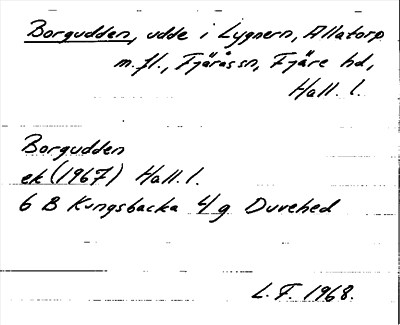 Borgudden, udde i Lygnern, Allatorp
m.fl., Fjärås sn, Fjäre hd,
Hall. l.
Borgudden
ek (1967) Hall. l.
6 B Kungsbacka 4 g Duvehed
L. F. 1968.